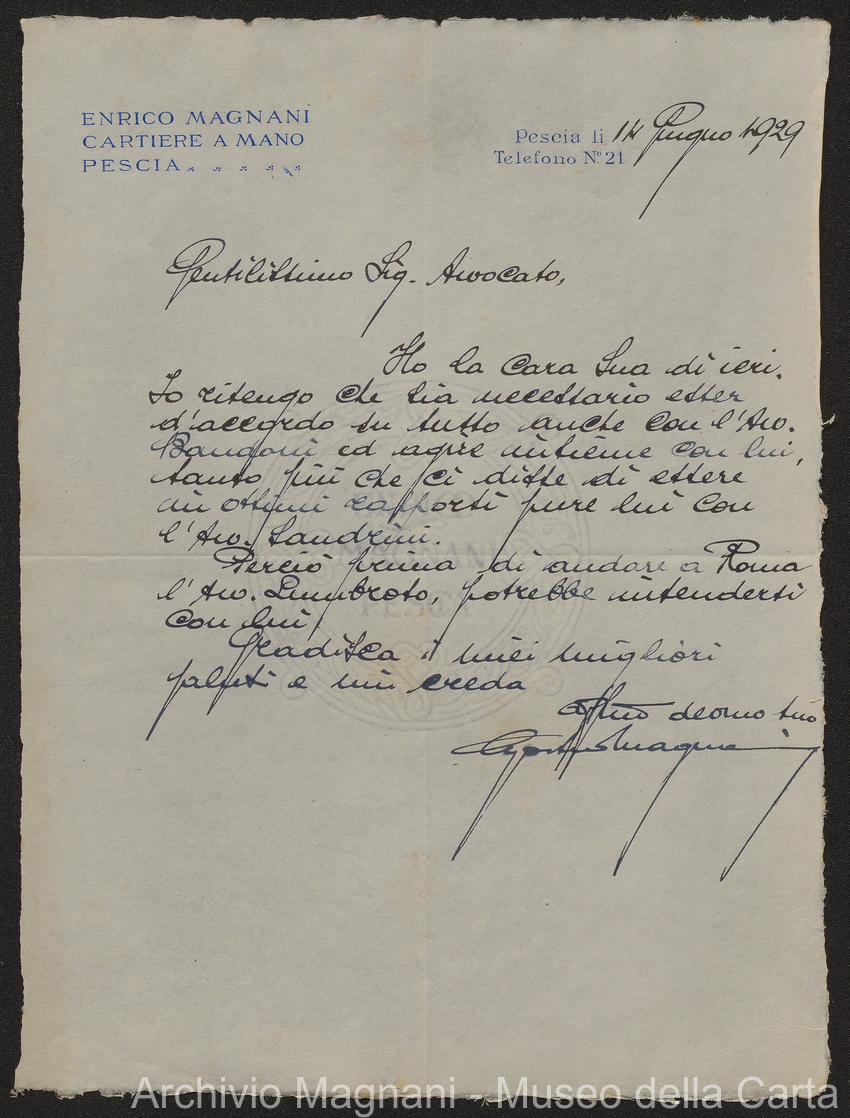 ENRICO MAGNANI
CARTIERE A MANO
PESCIA
Pescia li 14 Giugno 1929
Telefono N.º 21
Gentilissimo Sig. Avvocato,
Ho la cara Sua di ieri.
Io ritengo che sia necessario esser
d'accordo su tutto anche con l'Avv.
Bandoni ed agire insieme con lui,
tanto più che ci disse di essere
in ottimi rapporti pure lui con
l'Avv. Sandrini.
Perciò prima di andare a Roma
l'Avv. Lumbroso, potrebbe intendersi
con lui.
Gradisca i miei migliori
saluti e mi creda
Affmo devmo suo
Magnani
MAGNANI
PESCIA
Archivio Magnani - Museo della Carta